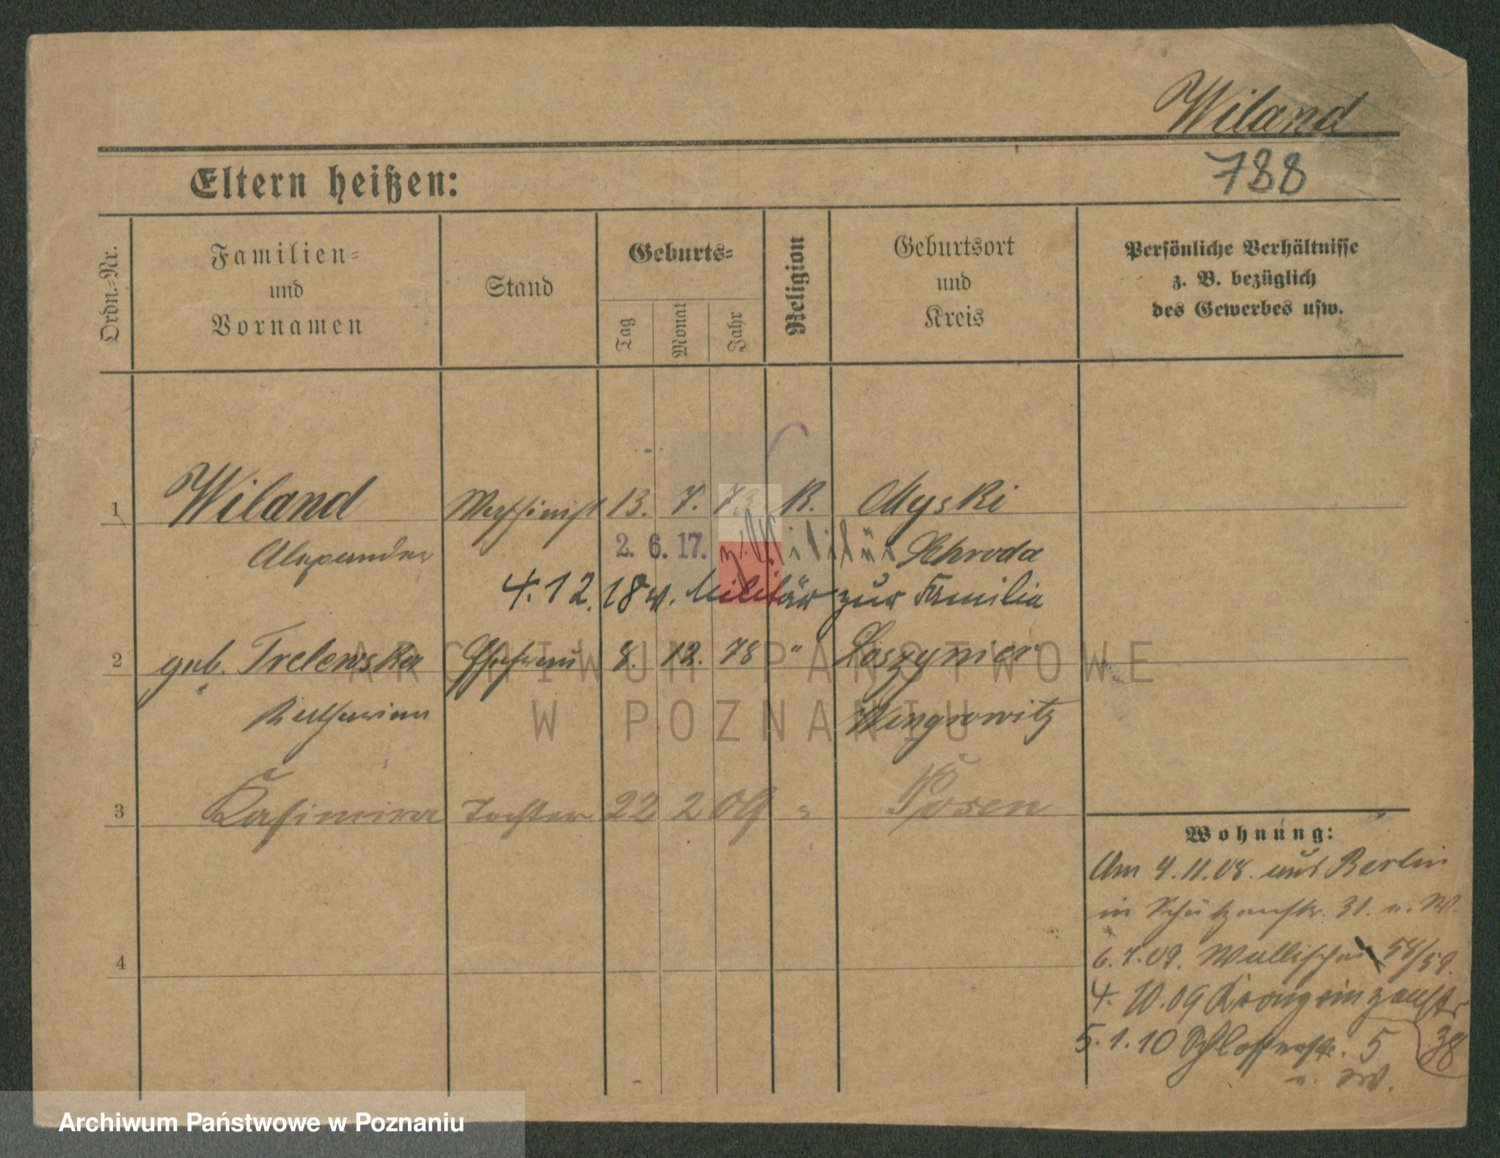 Wiland
788
Eltern heißen:
Ordn.-Nr.
Familien-
und
Vornamen
Stand
Geburts-
Tag
Monat
Jahr
Religion
Geburtsort
und
Kreis
Persönliche Verhältnisse
z. B. bezüglich
des Gewerbes usw.
1 Wiland Maschinist 13. 7. 73 K. Myski
Alexander 2. 6. 17. z. Militär Schroda
4.12.18 v. Militär zur Familie
2 geb. Trelewska Ehefrau 8. 12. 78 " Loszyniec
Katharina Wongrowitz
3 Kasimira Tochter 22 2 09 " Posen
Wohnung:
Am 4.11.08. aus Berlin
in Schützenstr. 31. u. W.
6.7.09. Wallischei 58/59.
4. 10.09 Kronprinzenstr
38
5.1.10 Schlosserstr. 5
u. W.
4
ARCHIWUM PAŃSTWOWE
W POZNANIU
Archiwum Państwowe w Poznaniu